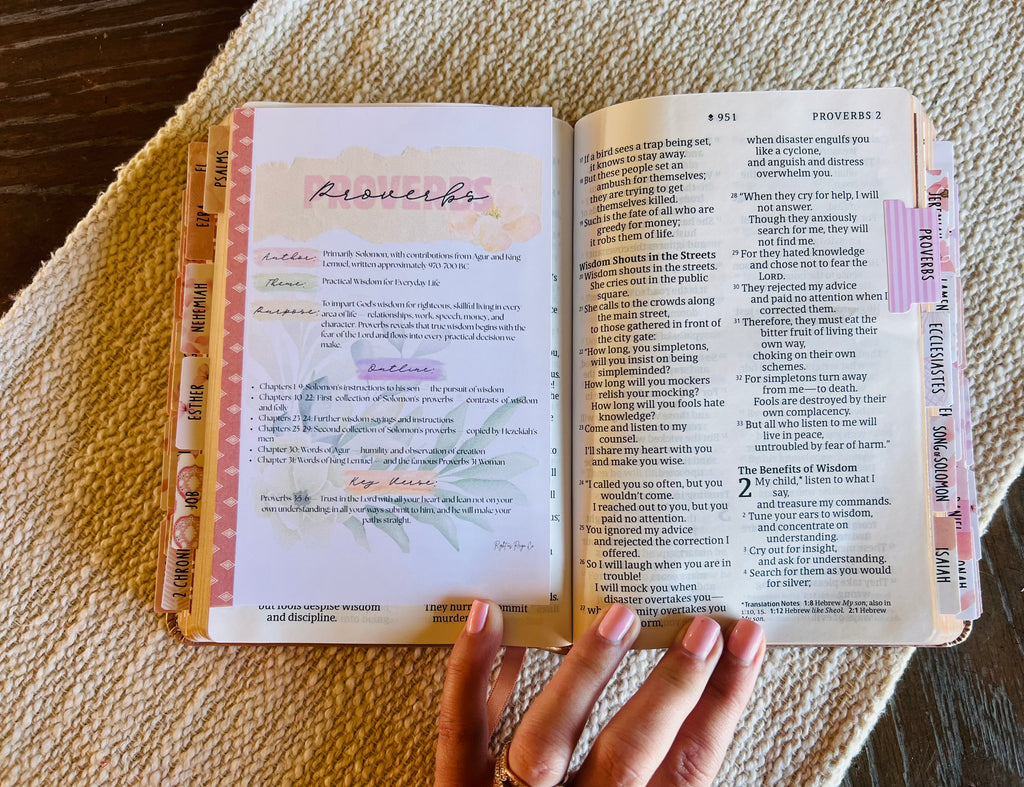 PSALMS
EZRA
NEHEMIAH
ESTHER
JOB
2 CHRONI
PROVERBS
Proverbs
Author:
Primarily Solomon, with contributions from Agur and King
Lemuel, written approximately 970-700 BC
Theme:
Practical Wisdom for Everyday Life
Purpose:
To impart God's wisdom for righteous, skillful living in every
area of life — relationships, work, speech, money, and
character. Proverbs reveals that true wisdom begins with the
fear of the Lord and flows into every practical decision we
make.
Outline:
• Chapters 1-9: Solomon's instructions to his son — the pursuit of wisdom
• Chapters 10-22: First collection of Solomon's proverbs — contrasts of wisdom
and folly
• Chapters 23-24: Further wisdom sayings and instructions
• Chapters 25-29: Second collection of Solomon's proverbs — copied by Hezekiah's
men
• Chapter 30: Words of Agur — humility and observation of creation
• Chapter 31: Words of King Lemuel — and the famous Proverbs 31 Woman
Key Verse:
Proverbs 3:5-6 — Trust in the Lord with all your heart and lean not on your
own understanding; in all your ways submit to him, and he will make your
paths straight.
but fools despise wisdom
and discipline.
They hurry to commit
murder
951
PROVERBS 2
17 If a bird sees a trap being set,
it knows to stay away.
18 But these people set an
ambush for themselves;
they are trying to get
themselves killed.
19 Such is the fate of all who are
greedy for money;
it robs them of life.
Wisdom Shouts in the Streets
20 Wisdom shouts in the streets.
She cries out in the public
square.
21 She calls to the crowds along
the main street,
to those gathered in front of
the city gate:
22 "How long, you simpletons,
will you insist on being
simpleminded?
How long will you mockers
relish your mocking?
How long will you fools hate
knowledge?
23 Come and listen to my
counsel.
I'll share my heart with you
and make you wise.
24 "I called you so often, but you
wouldn't come.
I reached out to you, but you
paid no attention.
25 You ignored my advice
and rejected the correction I
offered.
26 So I will laugh when you are in
trouble!
I will mock you when
disaster overtakes you—
27 when calamity overtakes you
orm,
when disaster engulfs you
like a cyclone,
and anguish and distress
overwhelm you.
28 "When they cry for help, I will
not answer.
Though they anxiously
search for me, they will
not find me.
29 For they hated knowledge
and chose not to fear the
LORD.
30 They rejected my advice
and paid no attention when I
corrected them.
31 Therefore, they must eat the
bitter fruit of living their
own way,
choking on their own
schemes.
32 For simpletons turn away
from me—to death.
Fools are destroyed by their
own complacency.
33 But all who listen to me will
live in peace,
untroubled by fear of harm."
The Benefits of Wisdom
2 My child,* listen to what I
say,
and treasure my commands.
2 Tune your ears to wisdom,
and concentrate on
understanding.
3 Cry out for insight,
and ask for understanding.
4 Search for them as you would
for silver;
*Translation Notes 1:8 Hebrew My son; also in
1:10, 15. 1:12 Hebrew like Sheol. 2:1 Hebrew
My son.
PROVERBS
ECCLESIASTES
SONG of SOLOMON
ISAIAH